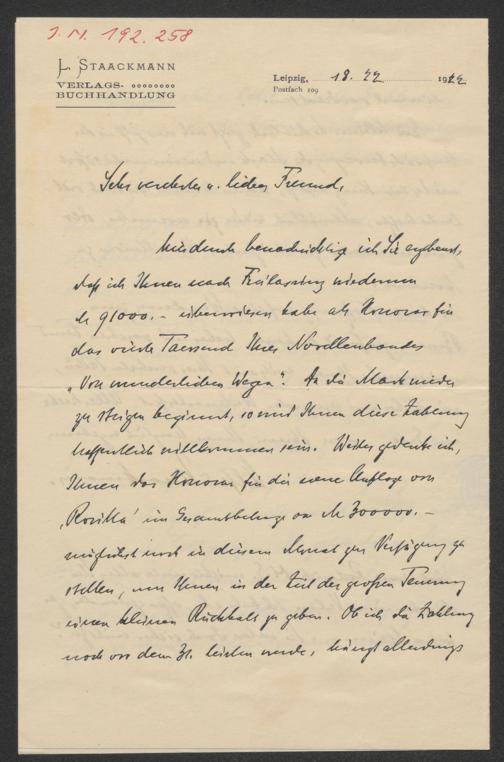 J. N. 192.258
L. STAACKMANN
VERLAGS-
BUCHHANDLUNG
Leipzig, 18. 1922
Postfach 109
Sehr verehrter u. lieber Freund,
Hierdurch benachrichtige ich Sie ergebenst,
daß ich Ihnen nach Freilassing wiederum
M 91000.- überwiesen habe als Honorar für
das vierte Tausend Ihres Novellenbandes
„Von wunderlichen Wegen“. Da die Mark wieder
zu steigen beginnt, so wird Ihnen diese Zahlung
hoffentlich willkommen sein. Weiter gedenke ich,
Ihnen das Honorar für die neue Auflage von
‚Rosítta‘ im Gesamtbetrage von M 300000.-
möglichst noch in diesem Monat zur Verfügung zu
stellen, um Ihnen in der Zeit der großen Teuerung
einen kleinen Rückhalt zu geben. Ob ich die Zahlung
noch vor dem 31. leisten werde, hängt allerdings